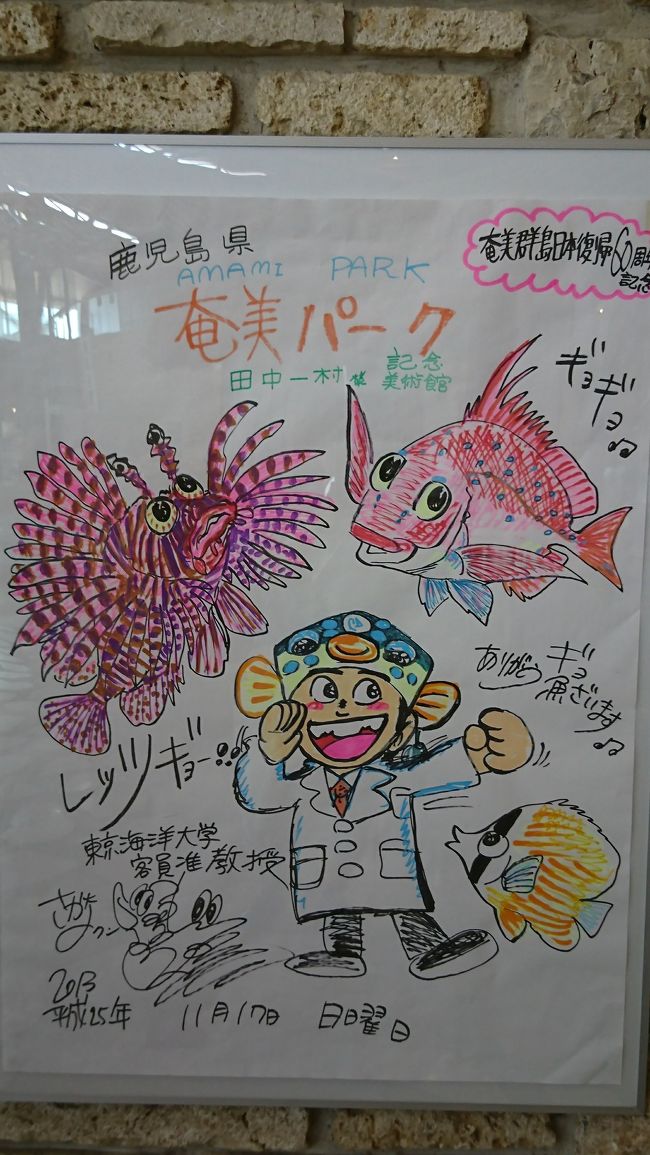 鹿児島県
AMAMI PARK
奄美パーク
田中一村 記念
美術館
奄美群島日本復帰60周年
記念
ギョギョ♫
ありがとう ギョ
魚ざいます♫
レッツギョー
東京海洋大学
客員准教授
さかなクン
2013
平成25年 11月17日 日曜日